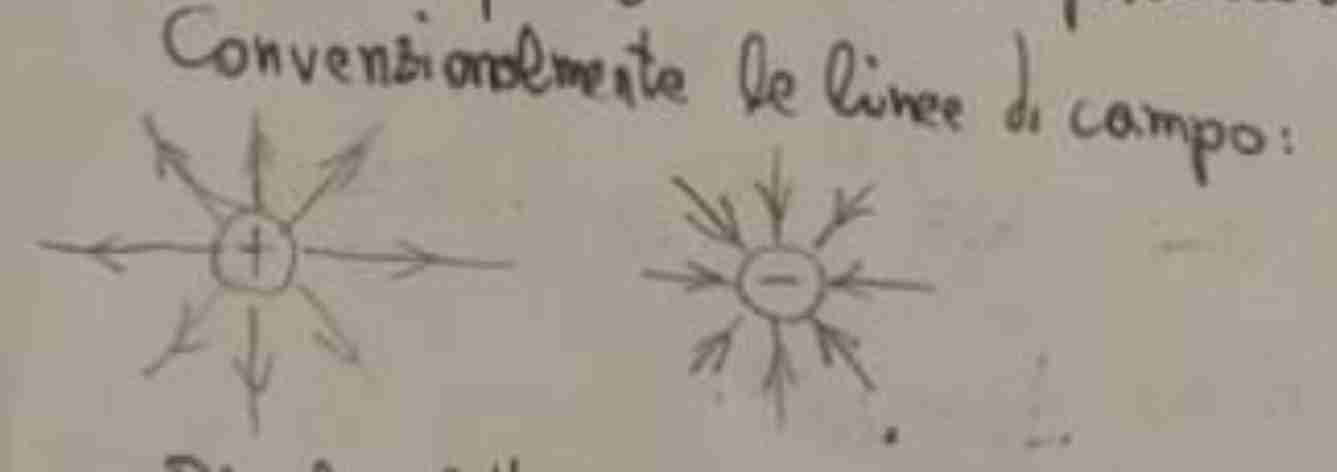 Convenzionalmente le linee di campo:
+
−